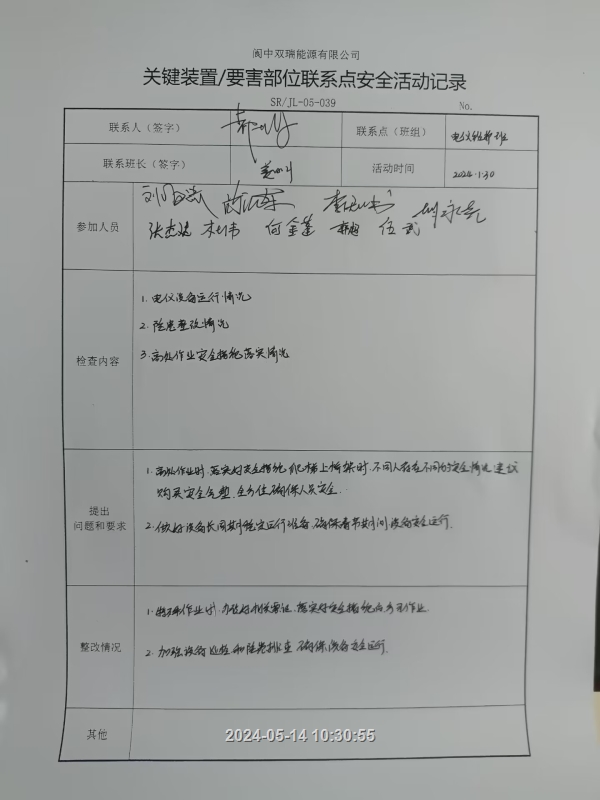 阆中双瑞能源有限公司
关键装置/要害部位联系点安全活动记录
SR/JL-05-039 No.
联系人（签字） 联系点（班组） 电仪维护班
联系班长（签字） 活动时间 2024.1.30
参加人员
何金莲 伍武
检查内容
1. 电仪设备运行情况
2. 隐患整改情况
3. 高处作业安全措施落实情况
提出
问题和要求
1. 高处作业时，落实好安全措施，爬梯上桥架时，不同人存在不同的安全情况，建议
购买安全气垫，全方位确保人员安全.
2. 做好设备长周期稳定运行准备，确保春节期间设备安全运行.
整改情况
1. 特殊作业时，办理好相关票证，落实好安全措施后方可作业
2. 加强设备巡检和隐患排查，确保设备安全运行.
其他
2024-05-14 10:30:55